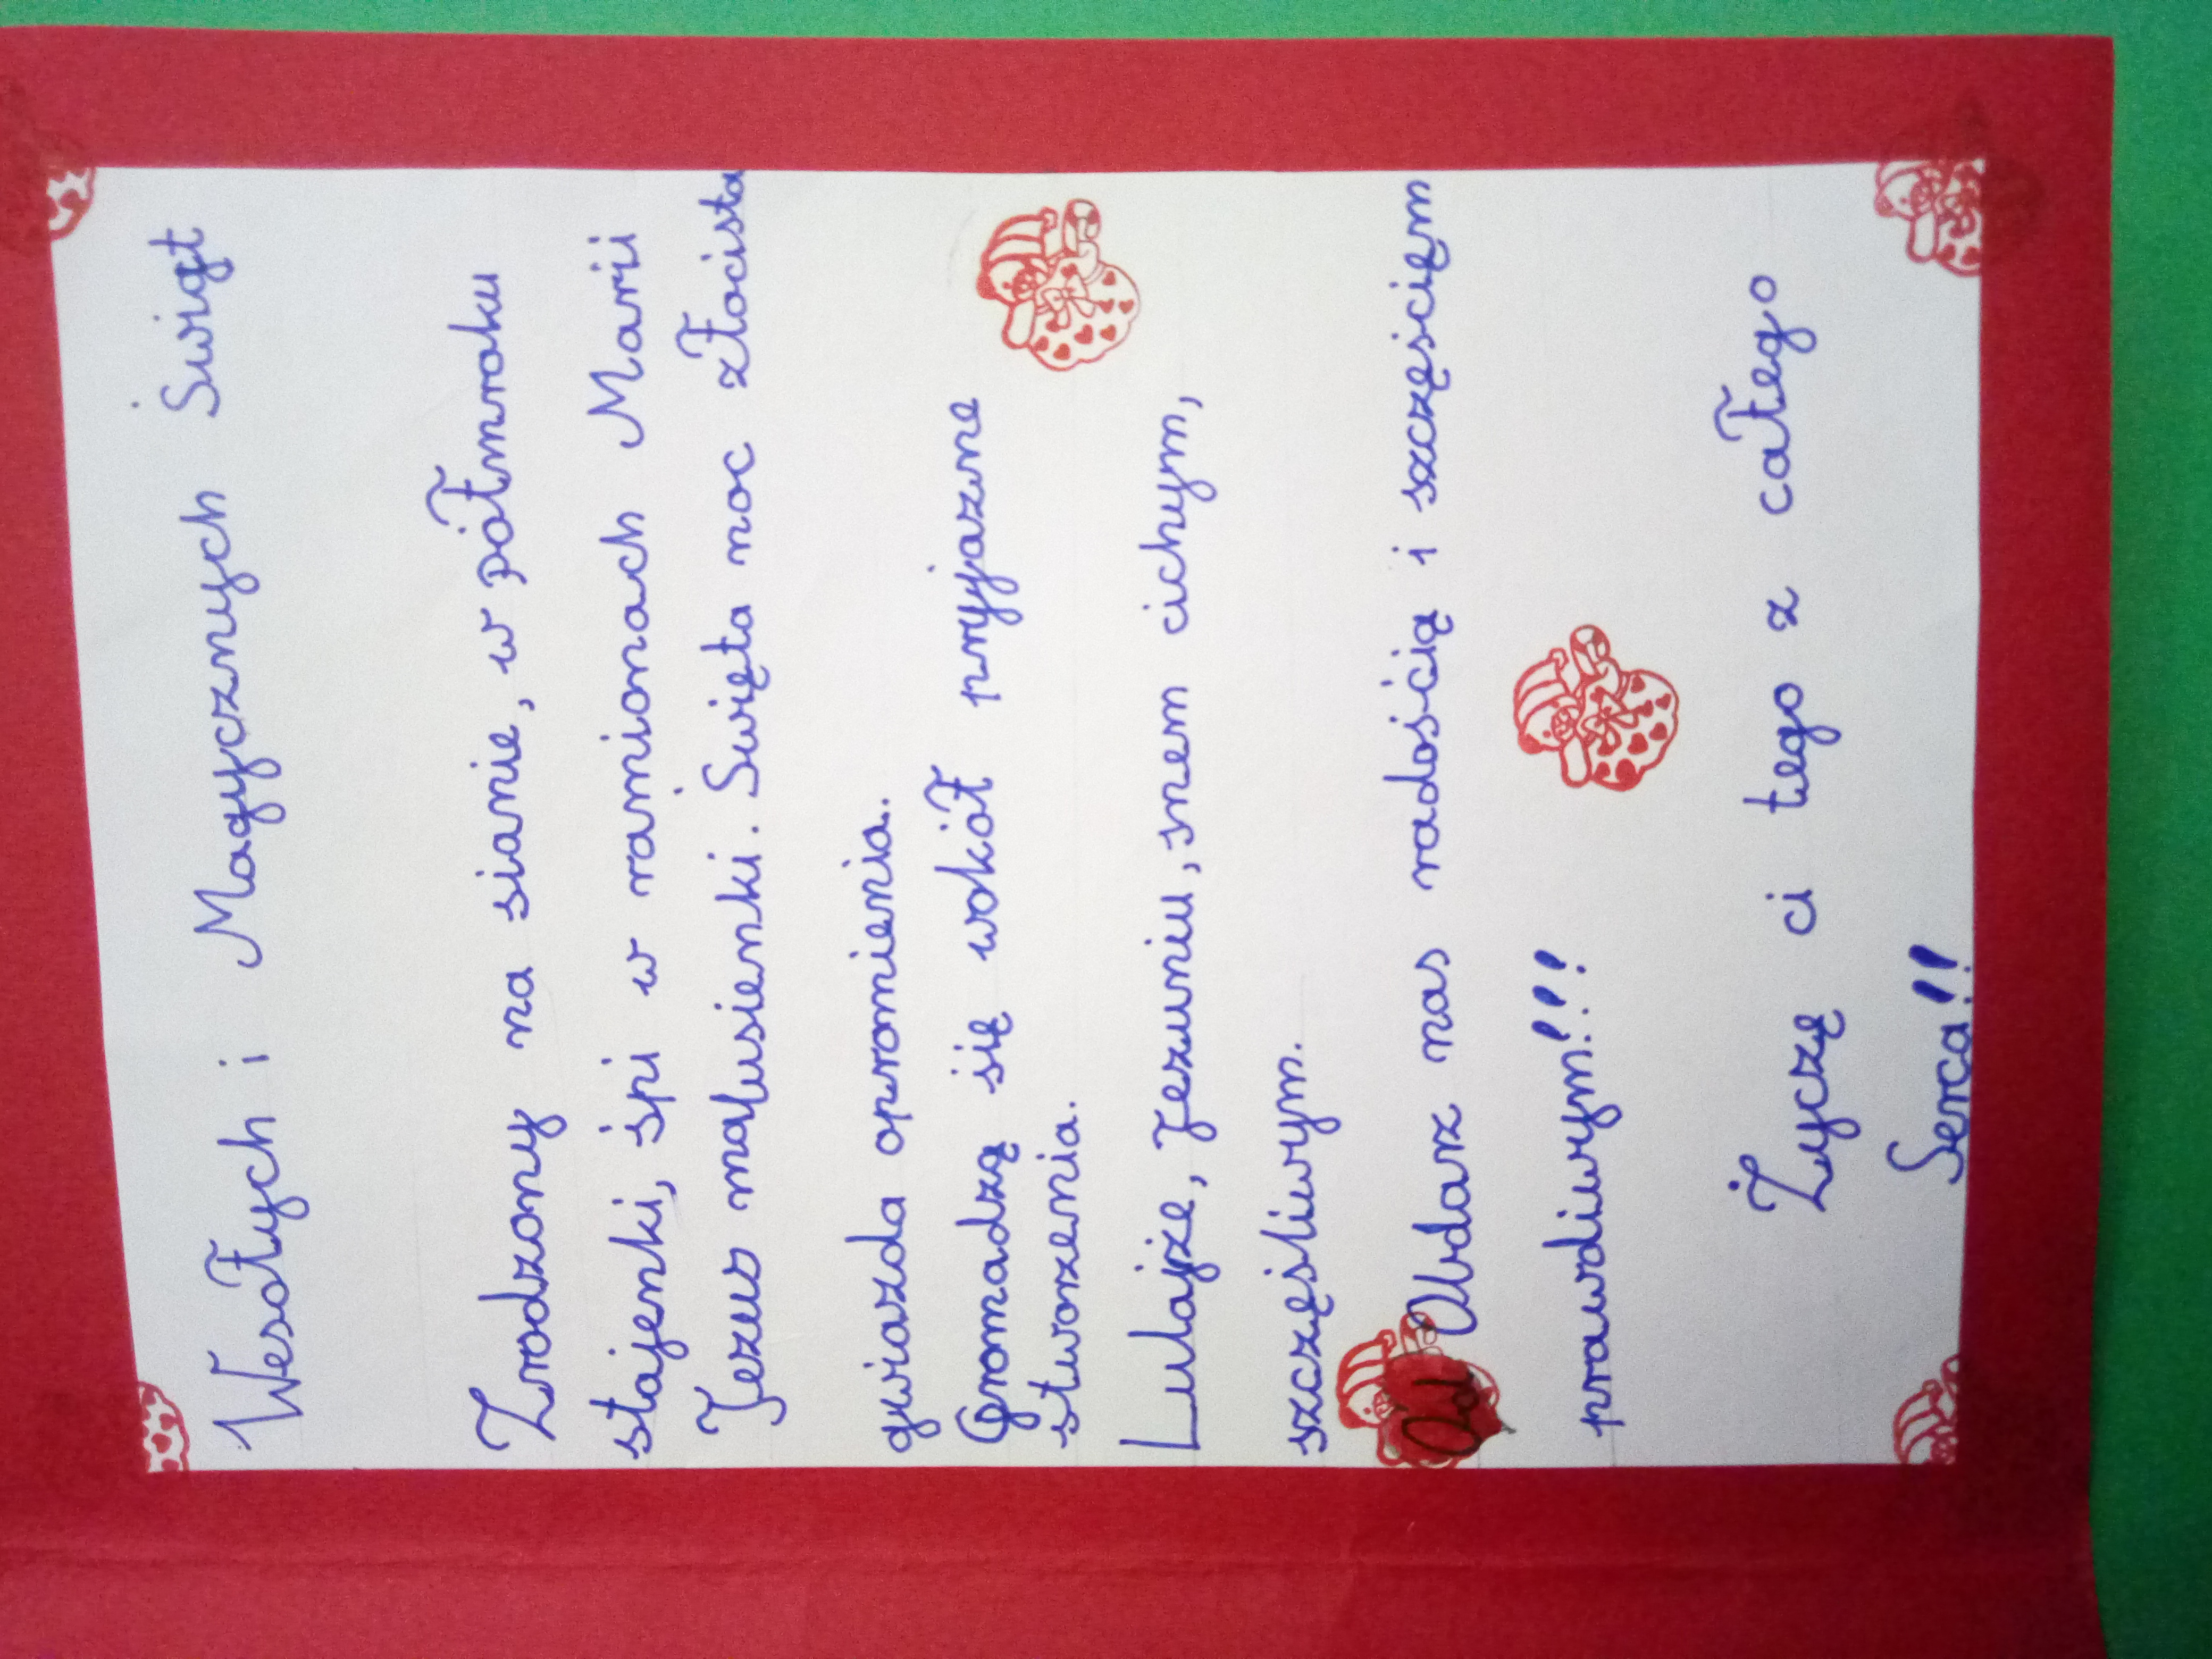 Wesołych i Magycznych Świąt
Zrodzony na sianie, w półmroku
stajenki, śpi w ramionach Marii
Jezus malusienki. Święta noc złocista
gwiazda opromienia.
Gromadzą się wokół pryjazne
stworzenia.
Lulajże, Jezuniu, snem cichym,
szczęśliwym.
Obdarz nas radością i szczęściem
prawdiwym!!!
Życzę ci tego z całego
Serca!!